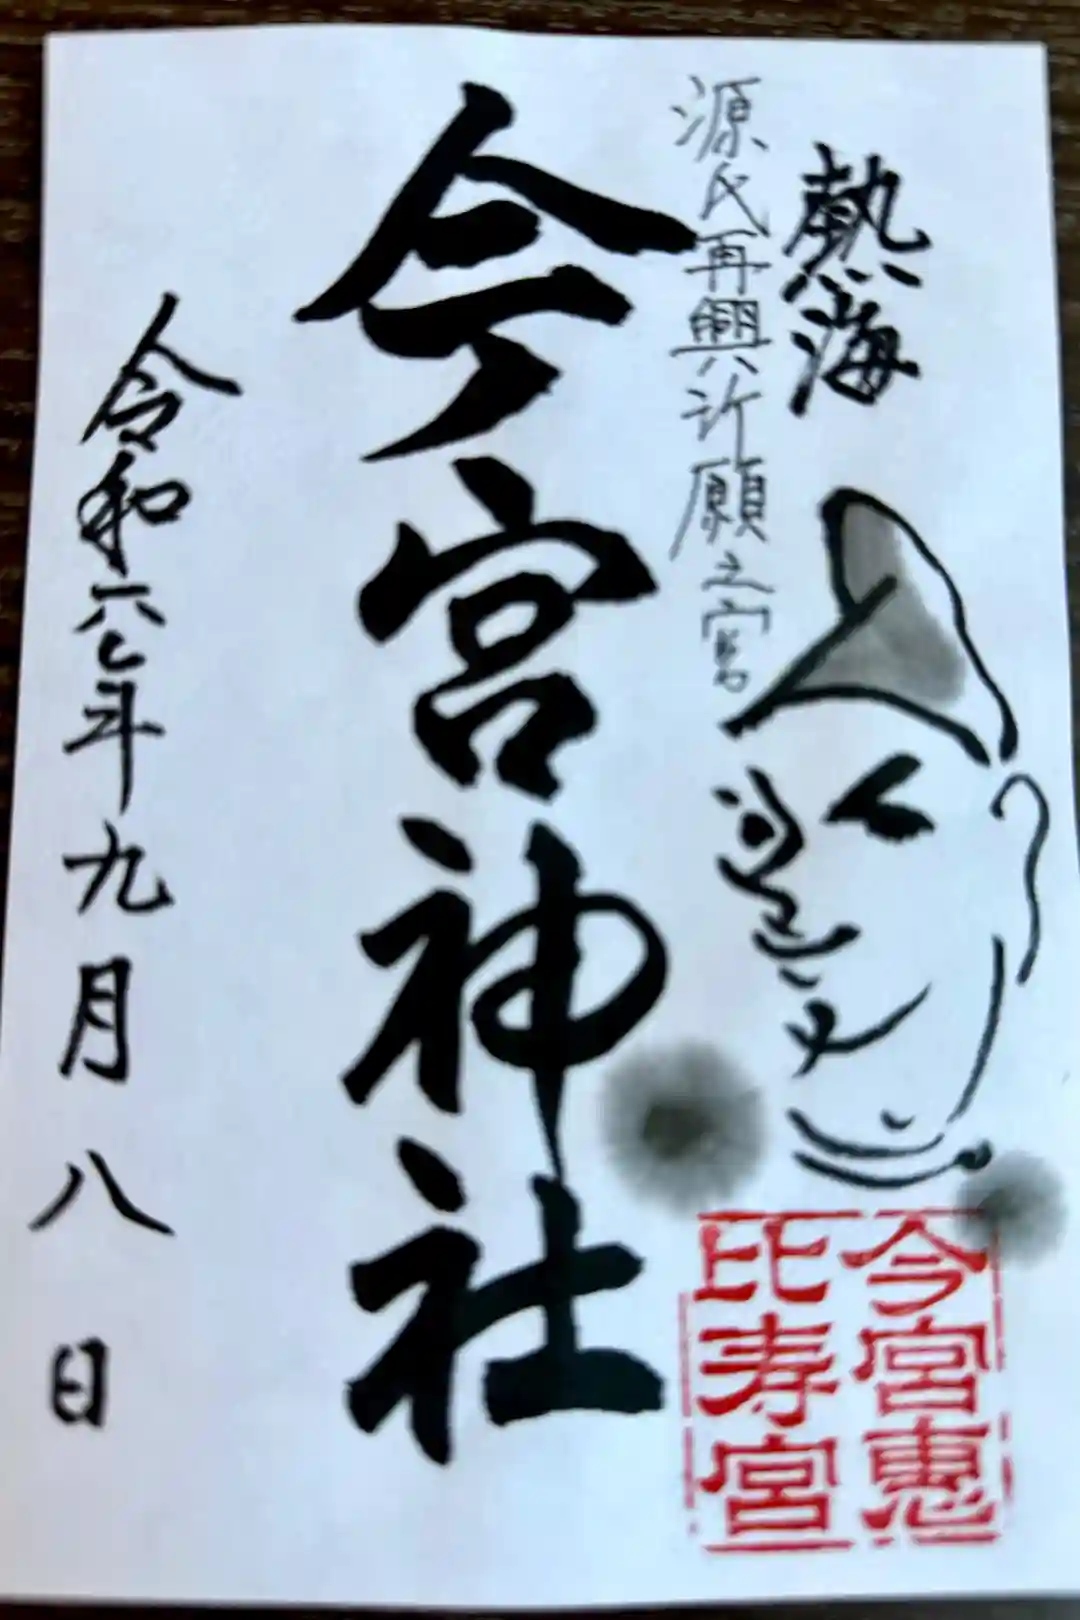 熱海
源氏再興許願之宮
今宮神社
令和六年九月八日
今宮惠
比寿宮